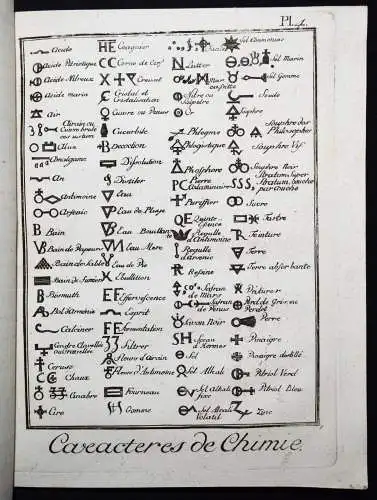 Pl. 4.
Acide
Acide Vitriolique
Acide Nitreux
Acide marin
Air
Alun
Amalgame
An
Antimoine
Arsenic
Bain
Bain de Vapeur
Bain de Sable
Bain de Fumier
Bismuth
Bol d'Armenie
Calciner
Ceruse
Chaux
Cinabre
Cire
Coaguler
Corne de Cerf
Creuset
Cristal et Cristalisation
Cuivre ou Venus
Cucurbite
Decoction
Dissolution
Distiler
Eau
Eau de Pluye
Eau Bouillante
Eau Mere
Eau de Vie
Ebullition
Effervescence
Esprit
Fermentation
Filtrer
Fleurs d'Airain
Fleurs d'Antimoine
Fourneau
Gomme
Lutter
Nitre ou Salpetre
Phlegme
Phlogistique
Phosphore
Pierre Calaminaire
Purifier
Quinte Essence
Regulle d'Antimoine
Regulle d'Arsenic
Resine
Safran de Mars
Safran de Venus
Savon Noir
Sel
Sel Alkali
Sel Alkali fixe
Sel Alkali Volatil
Sel Ammoniac
Sel Marin
Sel Gemme
Soude
Souphre
Souphre des Philosophes
Souphre Vif
Souphre Noir
Stratum Super Stratum, Couche par Couche
Sucre
Tartre
Teinture
Terre
Terre absorbante
Verd de Gris, ou Verdet
Verre
Vinaigre
Vinaigre distillé
Vitriol Verd
Vitriol Bleu
Zinc
Caracteres de Chimie.